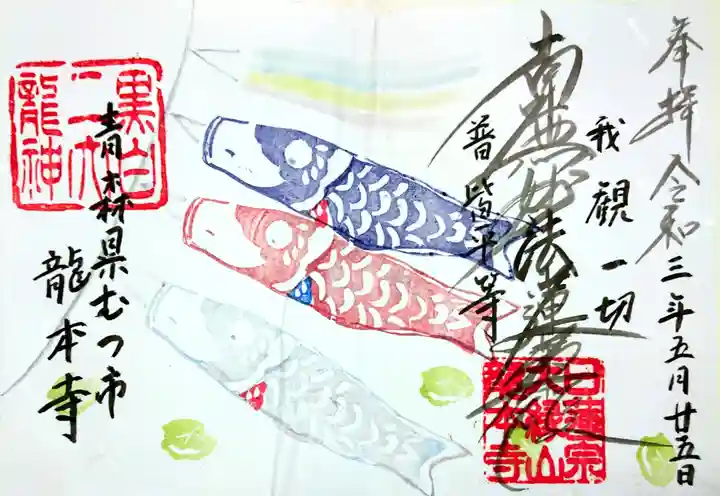 奉拝 令和三年五月廿五日
我観一切
南無妙法蓮華経
普皆平等
日蓮宗
龍本寺
黒白
二大
龍神
青森県むつ市
龍本寺